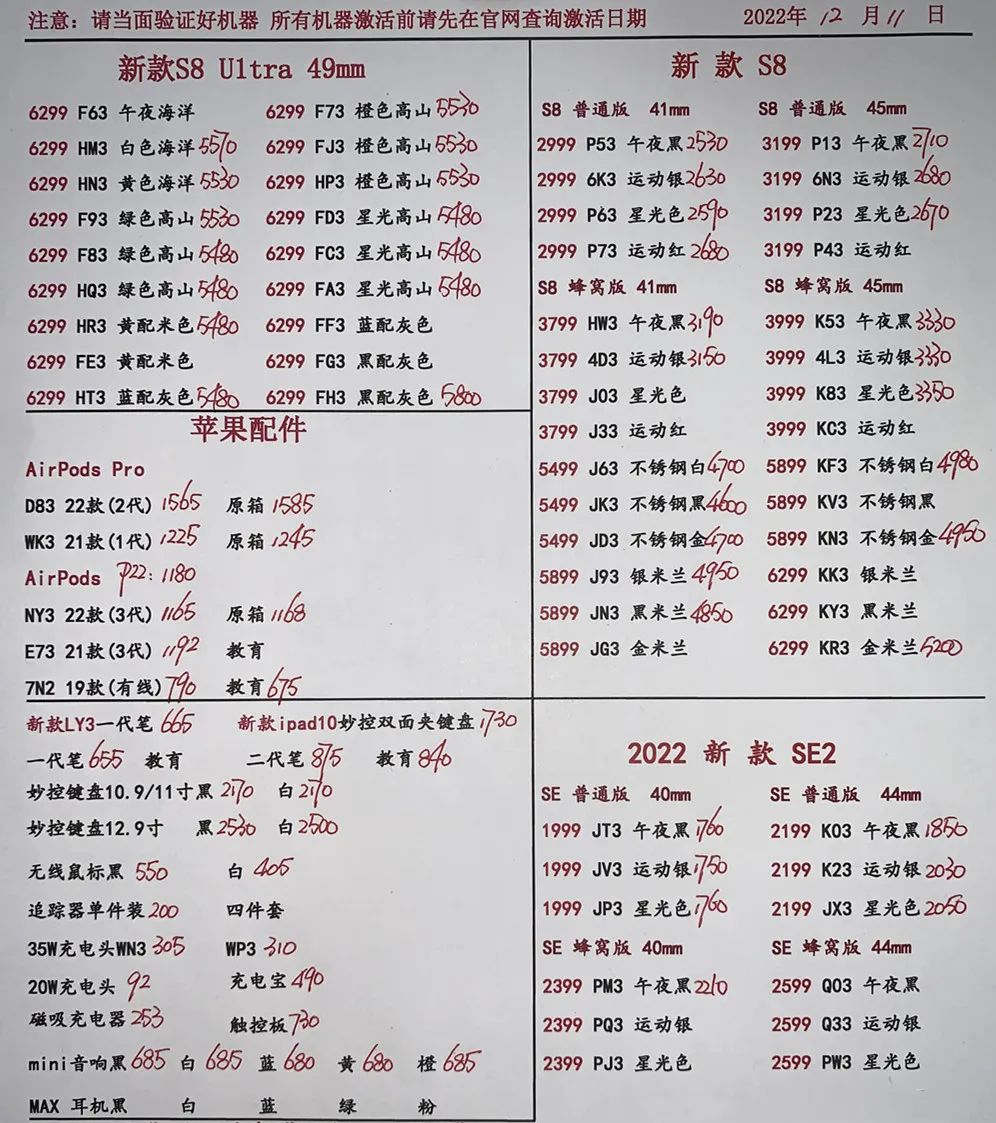 注意：请当面验证好机器 所有机器激活前请先在官网查询激活日期 2022年 12 月 11 日
新款S8 Ultra 49mm
6299 F63 午夜海洋 6299 F73 橙色高山 5530
6299 HM3 白色海洋 5570 6299 FJ3 橙色高山 5530
6299 HN3 黄色海洋 5530 6299 HP3 橙色高山 5530
6299 F93 绿色高山 5530 6299 FD3 星光高山 5480
6299 F83 绿色高山 5480 6299 FC3 星光高山 5480
6299 HQ3 绿色高山 5480 6299 FA3 星光高山 5480
6299 HR3 黄配米色 5480 6299 FF3 蓝配灰色
6299 FE3 黄配米色 6299 FG3 黑配灰色
6299 HT3 蓝配灰色 5480 6299 FH3 黑配灰色 5800
苹果配件
AirPods Pro
D83 22款(2代) 1565 原箱 1585
WK3 21款(1代) 1225 原箱 1245
AirPods P22: 1180
NY3 22款(3代) 1165 原箱 1168
E73 21款(3代) 1192 教育
7N2 19款(有线) 790 教育 675
新款LY3一代笔 665 新款ipad10妙控双面夹键盘 1730
一代笔 655 教育 二代笔 875 教育 840
妙控键盘10.9/11寸黑 2170 白 2170
妙控键盘12.9寸 黑 2530 白 2500
无线鼠标黑 550 白 405
追踪器单件装 200 四件套
35W充电头WN3 305 WP3 310
20W充电头 92 充电宝 490
磁吸充电器 253 触控板 730
mini音响黑 685 白 685 蓝 680 黄 680 橙 685
MAX 耳机黑 白 蓝 绿 粉
新 款 S8
S8 普通版 41mm S8 普通版 45mm
2999 P53 午夜黑 2530 3199 P13 午夜黑 2710
2999 6K3 运动银 2630 3199 6N3 运动银 2680
2999 P63 星光色 2590 3199 P23 星光色 2670
2999 P73 运动红 2680 3199 P43 运动红
S8 蜂窝版 41mm S8 蜂窝版 45mm
3799 HW3 午夜黑 3190 3999 K53 午夜黑 3330
3799 4D3 运动银 3150 3999 4L3 运动银 3330
3799 J03 星光色 3999 K83 星光色 3350
3799 J33 运动红 3999 KC3 运动红
5499 J63 不锈钢白 4700 5899 KF3 不锈钢白 4980
5499 JK3 不锈钢黑 4600 5899 KV3 不锈钢黑
5499 JD3 不锈钢金 4700 5899 KN3 不锈钢金 4950
5899 J93 银米兰 4950 6299 KK3 银米兰
5899 JN3 黑米兰 4850 6299 KY3 黑米兰
5899 JG3 金米兰 6299 KR3 金米兰 5200
2022 新 款 SE2
SE 普通版 40mm SE 普通版 44mm
1999 JT3 午夜黑 1760 2199 K03 午夜黑 1850
1999 JV3 运动银 1750 2199 K23 运动银 2030
1999 JP3 星光色 1760 2199 JX3 星光色 2050
SE 蜂窝版 40mm SE 蜂窝版 44mm
2399 PM3 午夜黑 2210 2599 Q03 午夜黑
2399 PQ3 运动银 2599 Q33 运动银
2399 PJ3 星光色 2599 PW3 星光色